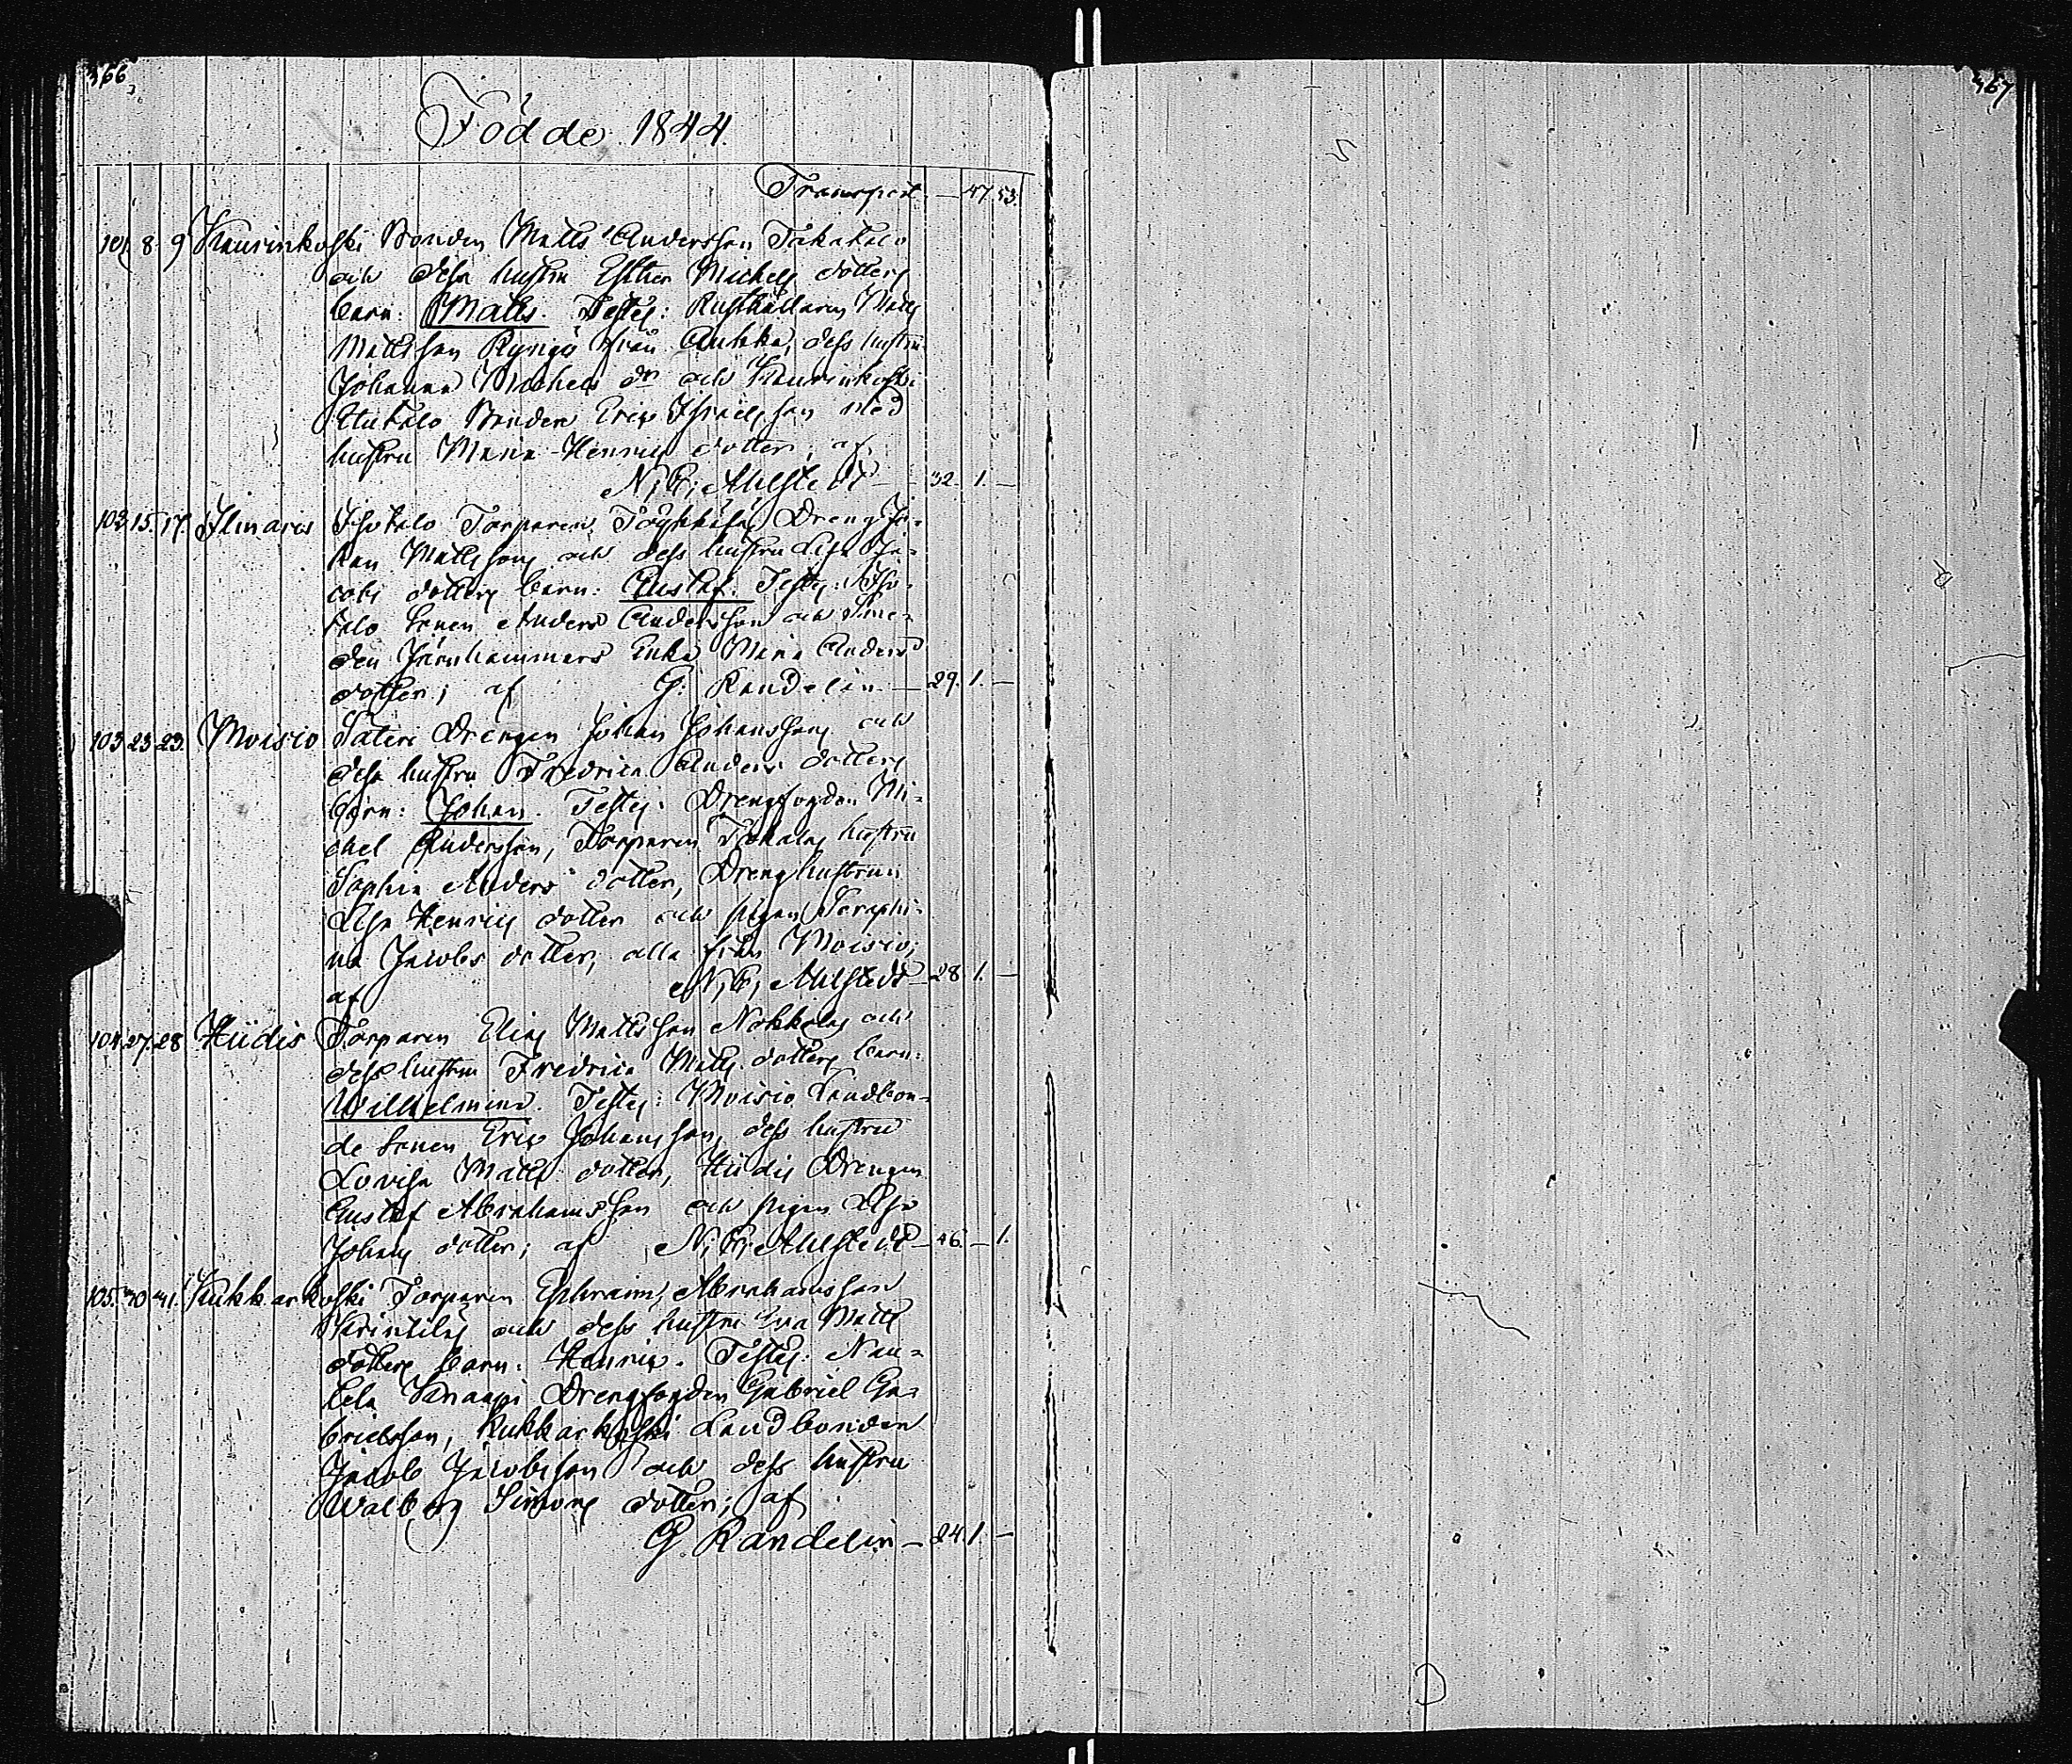 466
467
Födde 1844.
Transport — 47. 53.
101. 8. 9 Kaurinkoski Bonden Matts Andersson Takatalo
och dess hustru Esther Michels dotters
barn: Matts. Testes: Rusthållaren Matts
Mattsson Ryngö från Auhka, dess hustru
Johanna Michels dr och Kaurinkoski
Uutalo Bonden Eric Israelsson med
hustru Maria Henrics dotter; af
N. G. Ahlstedt — 32. 1. —
103. 15. 17. Ilmarus Isotalo Torparen Drengs Jo-
han Mattssons och dess hustru Lisa Ja-
cobs dotters barn: Gustaf. Testes: Iso-
talo Sonen Anders Andersson och Sme-
den Järnhammars Enka Maria Anders
dotter; af G. Randelin — 29. 1. —
103. 23. 23. Moisio Säteri Drengen Johan Johanssons och
dess hustru Fredrica Anders dotters
barn: Johan. Testes: Drengfogden Mi-
chel Andersson, Torparen hustru
Sophia Anders dotter, Dreng hustrun
Lisa Henrics dotter och pigan Seraphi-
na Jacobs dotter, alla från Moisio;
af N. G. Ahlstedt — 28 1. —
104. 27. 28 Hiidis Torparen Elias Mattsson Nokkalas och
dess hustru Fredrica Matts dotters barn:
Wilhelmina. Testes: Moisio Landbon-
de Sonen Eric Johansson, dess hustru
Lovisa Matts dotter, Hiidis Drengen
Gustaf Abrahamsson och pigan Lisa
Johans dotter; af N. G. Ahlstedt — 46. — 1.
105. 30 31. Kukkarkoski Torparen Ephraim Abrahamsson
och dess hustru Eva Matts
dotters barn: Henric. Testes: Nau-
tela Knaapi Drengfogden Gabriel Ga-
brielsson, Kukkarkoski Landbonden
Jacob Jacobsson och dess hustru
Walborg Simons dotter; af
G. Randelin — 24. 1. —